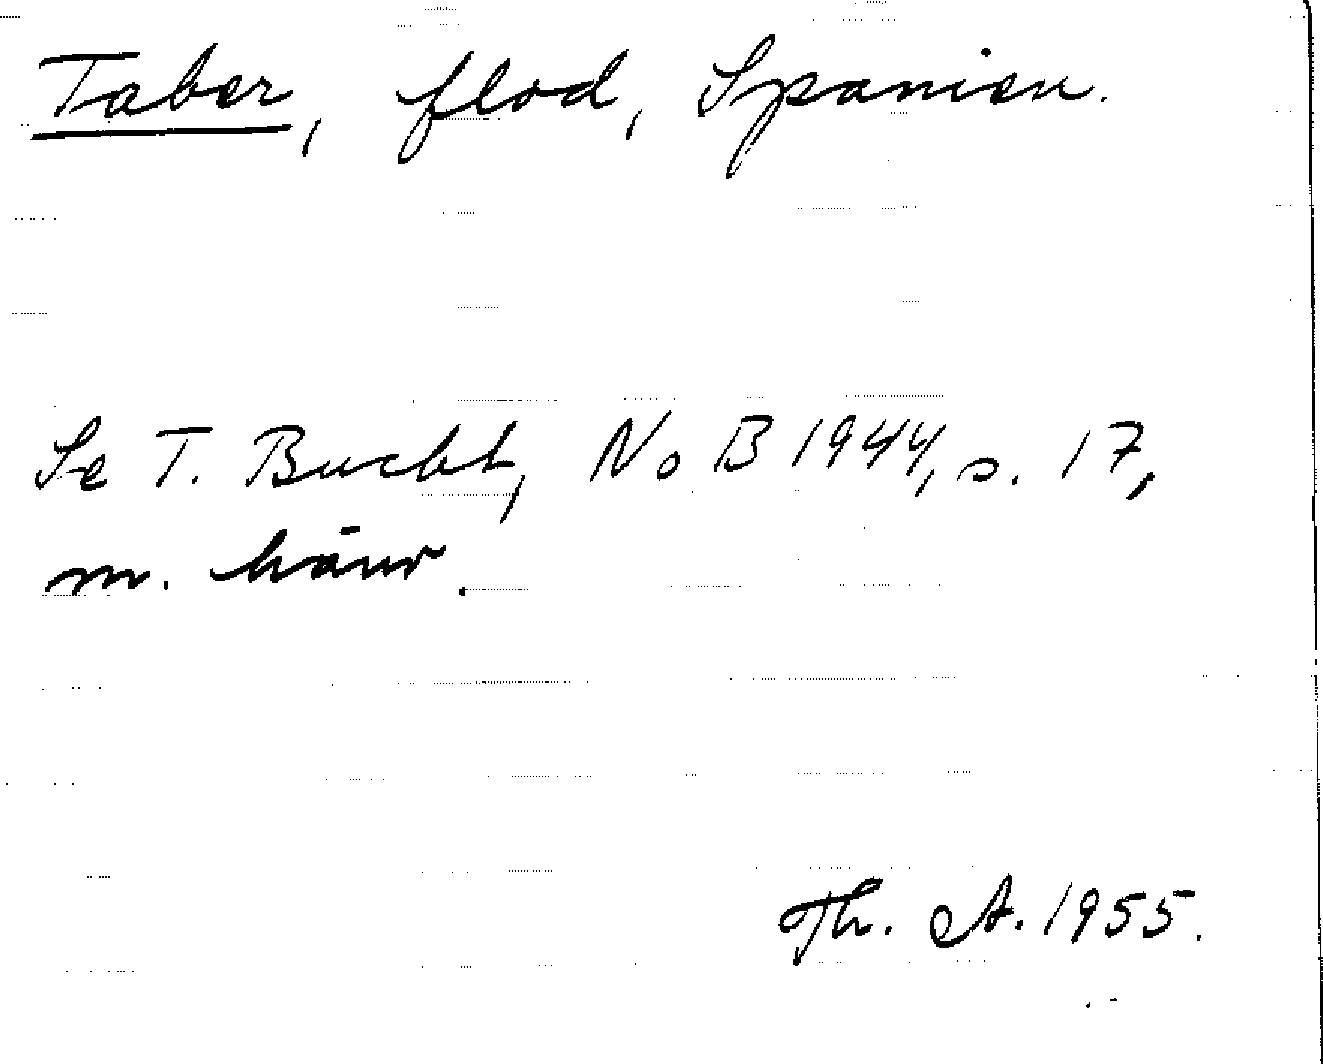 Taber, flod, Spanien.
Se T. Bucht, NoB 1944, s. 17,
m. hänv.
Th. A. 1955.